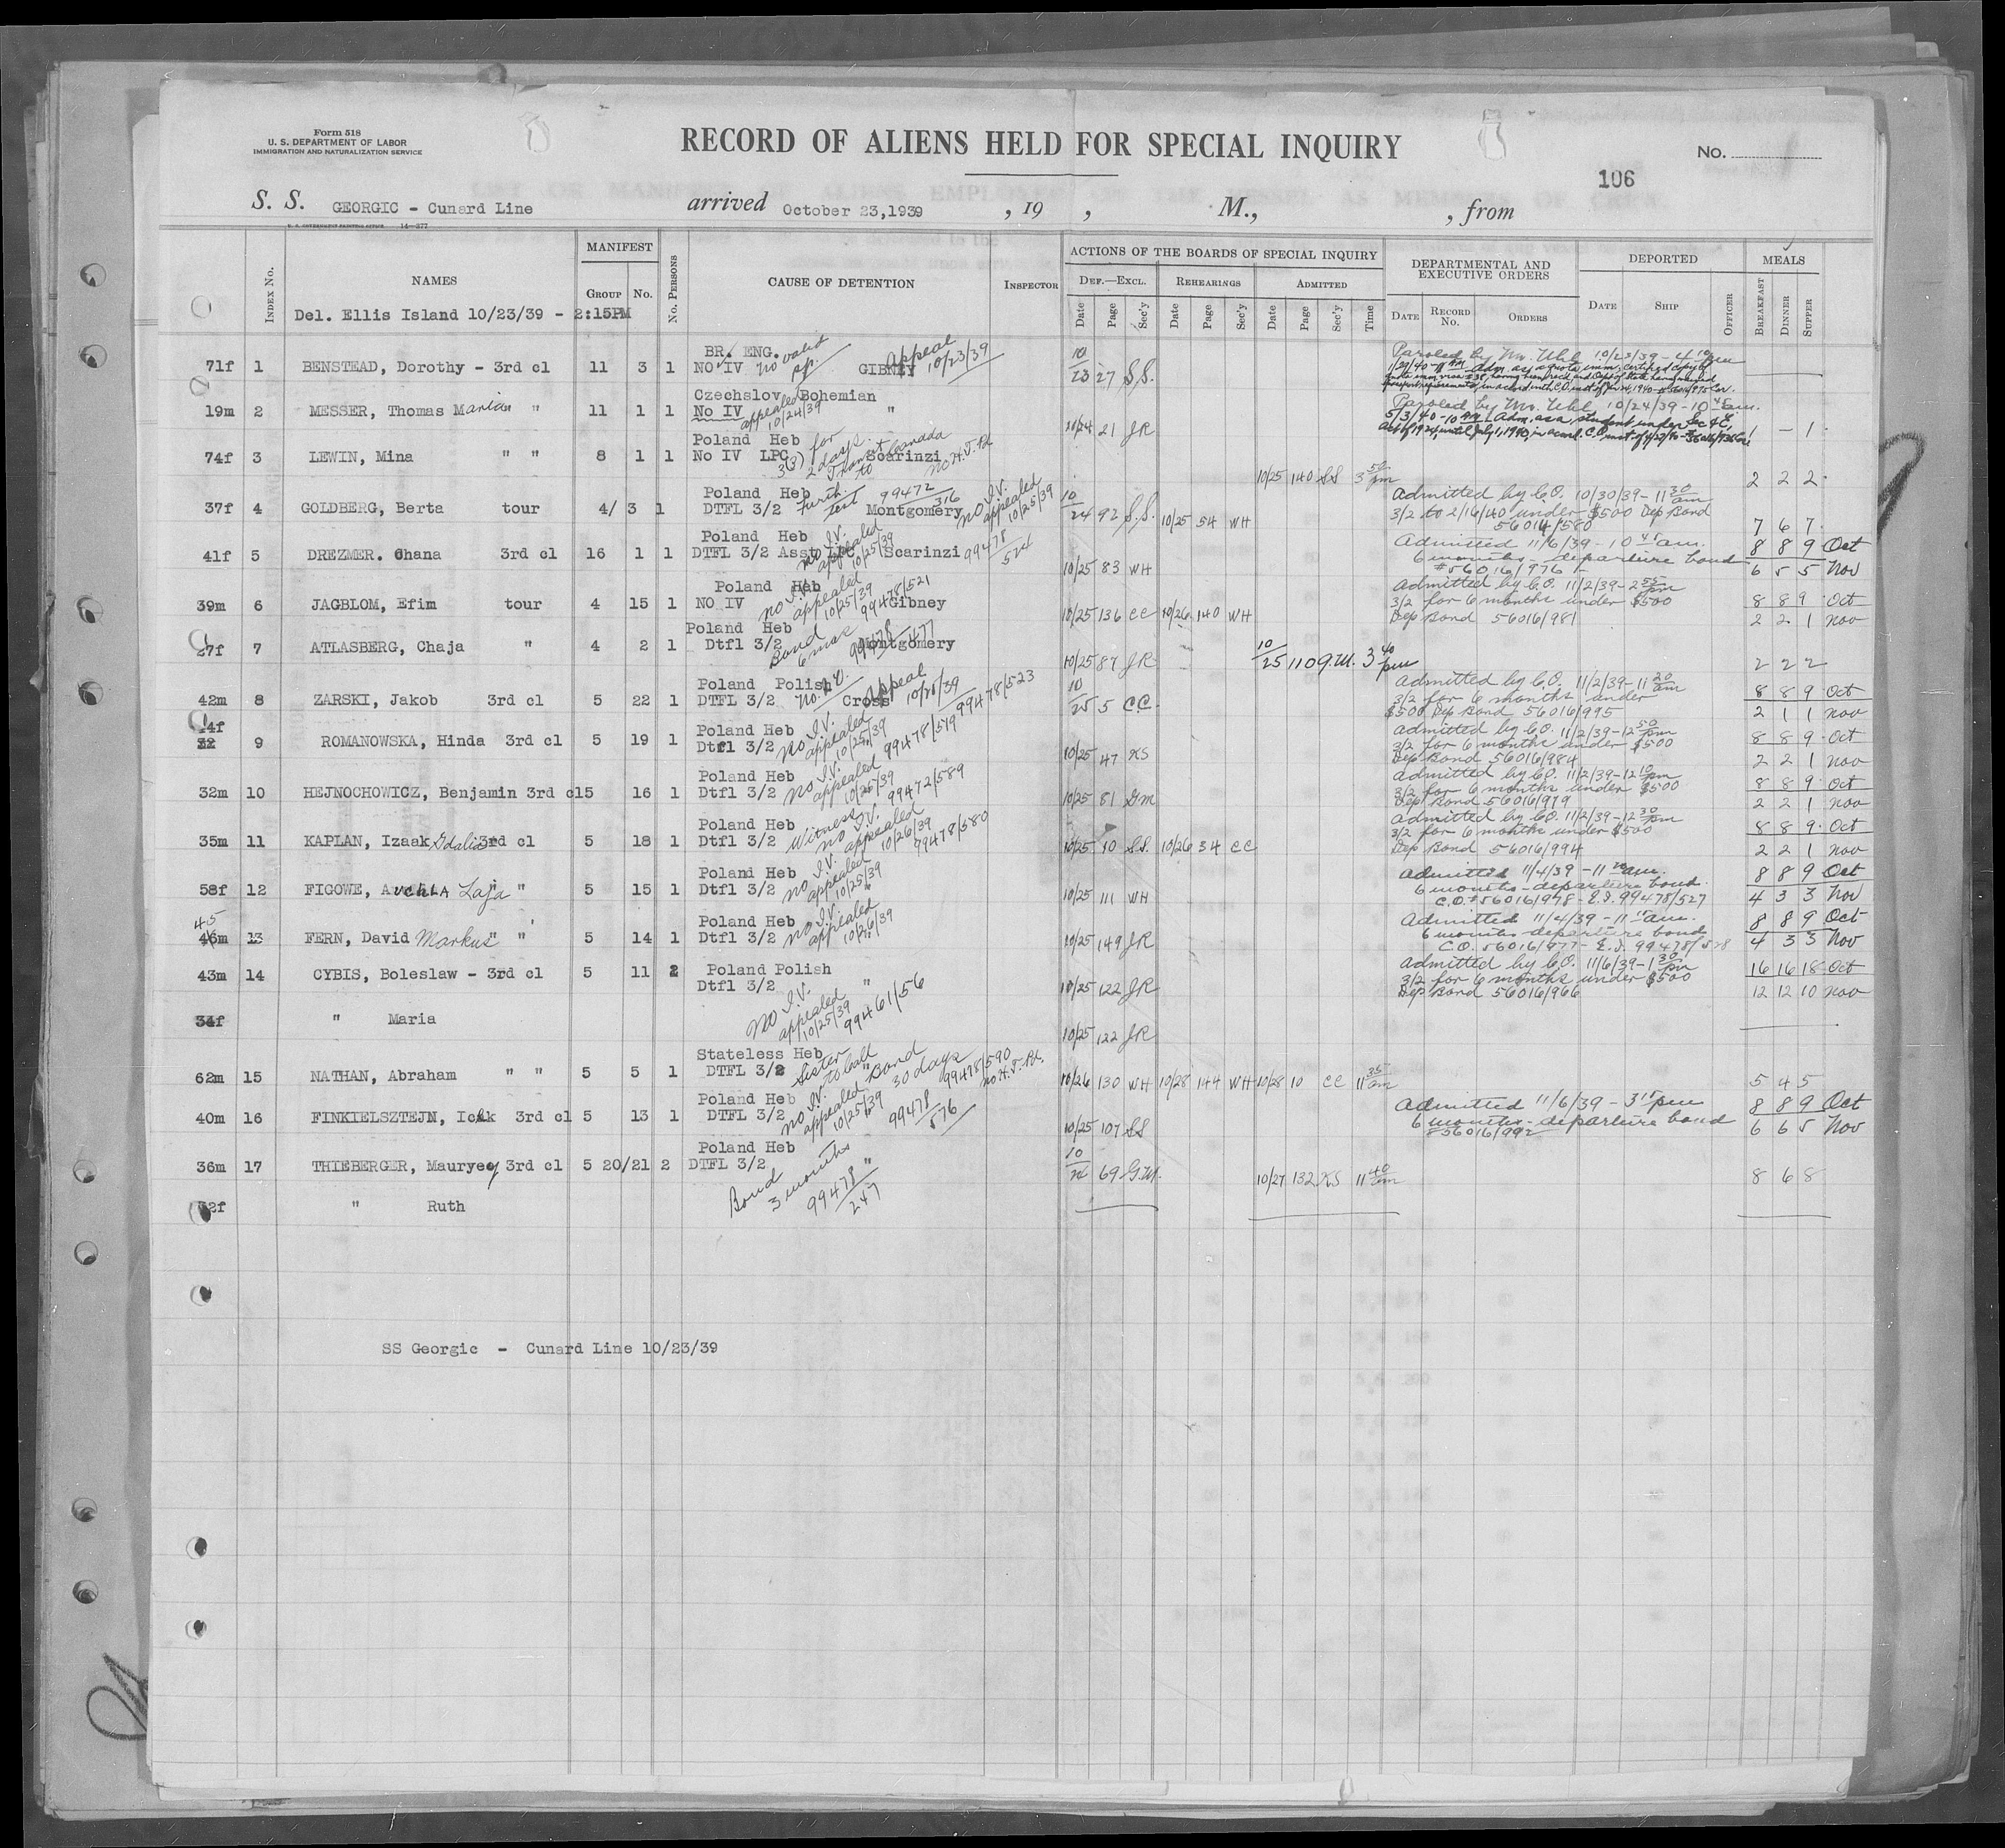 Form 518
U. S. DEPARTMENT OF LABOR
IMMIGRATION AND NATURALIZATION SERVICE
RECORD OF ALIENS HELD FOR SPECIAL INQUIRY
No.
106
S. S. GEORGIC - Cunard Line arrived October 23,1939 , 19 , M., , from
U. S. GOVERNMENT PRINTING OFFICE 14-277
Index No. NAMES MANIFEST Group No. No. Persons CAUSE OF DETENTION Inspector ACTIONS OF THE BOARDS OF SPECIAL INQUIRY DEPARTMENTAL AND EXECUTIVE ORDERS DEPORTED MEALS
Def.—Excl. Rehearings Admitted
Date Page Sec'y Date Page Sec'y Date Page Sec'y Time Date Record No. Orders Date Ship Officer Breakfast Dinner Supper
Del. Ellis Island 10/23/39 - 2:15PM
BR. ENG.
71f 1 BENSTEAD, Dorothy - 3rd cl 11 3 1 NO IV no valid pp. GIBNEY Appeal 10/23/39 10/23 27 S.S. Paroled by Mr. Uhl 10/23/39 - 4 10 pm
Czechslov Bohemian
19m 2 MESSER, Thomas Maria " " 11 1 1 No IV appealed 10/24/39 " 10/24 21 JR Paroled by Mr. Uhl 10/24/39 - 10 45 am.
5/3/40 - 10 AM Adm. as a student under Sec 4 E, 1 - 1
Poland Heb
74f 3 LEWIN, Mina " " 8 1 1 No IV LPC 3(3) for 2 days Transit to Canada Scarinzi no H.T. Pd. 10/25 140 SS 3 50 pm 2 2 2
Poland Heb
37f 4 GOLDBERG, Berta tour 4/ 3 1 DTFL 3/2 Furth test 99472/316 Montgomery no I.V. appealed 10/25/39 10/24 92 S.S. 10/25 54 WH Admitted by C.O. 10/30/39 - 11 30 am
3/2 to 2/16/40 under $500 Dep Bond
56014/580 7 6 7
Poland Heb
41f 5 DREZMER. Chana 3rd cl 16 1 1 DTFL 3/2 Asst LPC no I.V. appealed 10/25/39 Scarinzi 99478/524 10/25 83 WH Admitted 11/6/39 - 10 45 am. 8 8 9 Oct
6 months - departure bond
#56016/976 6 5 5 Nov
Poland Heb
39m 6 JAGBLOM, Efim tour 4 15 1 NO IV no I.V. appealed 10/25/39 99478/521 Gibney 10/25 136 CC 10/26 140 WH Admitted by C.O. 11/2/39 - 2 55 pm
3/2 for 6 months under $500 8 8 9 Oct
Dep Bond 56016/981 2 2 1 Nov
Poland Heb
27f 7 ATLASBERG, Chaja " 4 2 1 Dtfl 3/2 Bond 6 mos 99478/477 Montgomery 10/25 87 JR 10/25 110 G.M. 3 40 pm 2 2 2
Poland Polish
42m 8 ZARSKI, Jakob 3rd cl 5 22 1 DTFL 3/2 no I.V. Cross Appeal 10/25/39 99478/523 10/25 5 C.C. Admitted by C.O. 11/2/39 - 11 20 am
3/2 for 6 months under 8 8 9 Oct
$500 Dep Bond 56016/995 2 1 1 Nov
Poland Heb
14f 32 9 ROMANOWSKA, Hinda 3rd cl 5 19 1 Dtfl 3/2 no I.V. appealed 10/25/39 99478/519 10/25 47 KS Admitted by C.O. 11/2/39 - 12 50 pm
3/2 for 6 months under $500 8 8 9 Oct
Dep Bond 56016/984 2 2 1 Nov
Poland Heb
32m 10 HEJNOCHOWICZ, Benjamin 3rd cl 5 16 1 Dtfl 3/2 no I.V. appealed 10/25/39 99472/589 10/25 81 G.M. Admitted by C.O. 11/2/39 - 12 10 pm
3/2 for 6 months under $500 8 8 9 Oct
Dep Bond 56016/979 2 2 1 Nov
Poland Heb
35m 11 KAPLAN, Izaak Gdalia 3rd cl 5 18 1 Dtfl 3/2 Witness no I.V. appealed 10/26/39 99478/580 10/25 10 S.S. 10/26 34 CC Admitted by C.O. 11/2/39 - 12 30 pm
3/2 for 6 months under $500 8 8 9 Oct
Dep Bond 56016/994 2 2 1 Nov
Poland Heb
58f 12 FIGOWE, Laja " " 5 15 1 Dtfl 3/2 no I.V. appealed 10/25/39 " 10/25 111 WH Admitted 11/4/39 - 11 am. 8 8 9 Oct
6 months - departure bond.
C.O. #56016/978 - E.I. 99478/527 4 3 3 Nov
Poland Heb
45 46m 13 FERN, David Markus " " 5 14 1 Dtfl 3/2 no I.V. appealed 10/26/39 " 10/25 149 JR Admitted 11/4/39 - 11 am. 8 8 9 Oct
6 months departure bond
C.O. 56016/977 - E.I. 99478/528 4 3 3 Nov
43m 14 CYBIS, Boleslaw - 3rd cl 5 11 2 Poland Polish
Dtfl 3/2 " no I.V. appealed 10/25/39 99461/56 10/25 122 JR Admitted by C.O. 11/6/39 - 1 30 pm 16 16 18 Oct
3/2 for 6 months under $500
Dep Bond 56016/966 12 12 10 Nov
34f " Maria 10/25 122 JR
Stateless Heb
62m 15 NATHAN, Abraham " " 5 5 1 DTFL 3/2 Sister to call " Bond 30 days 99478/590 no H.T. Pd. 10/26 130 WH 10/28 144 WH 10/28 10 CC 11 35 am 5 4 5
Poland Heb
40m 16 FINKIELSZTEJN, Icek 3rd cl 5 13 1 DTFL 3/2 no I.V. appealed 10/25/39 " 99478/576 10/25 107 SS Admitted 11/6/39 - 3 15 pm 8 8 9 Oct
6 months - departure bond
#56016/992 6 6 5 Nov
Poland Heb
36m 17 THIEBERGER, Mauryey 3rd cl 5 20/21 2 DTFL 3/2 Bond 3 months 99478/247 " 10/24 69 G.M. 10/27 132 KS 11 40 am 8 6 8
32f " Ruth
SS Georgic - Cunard Line 10/23/39